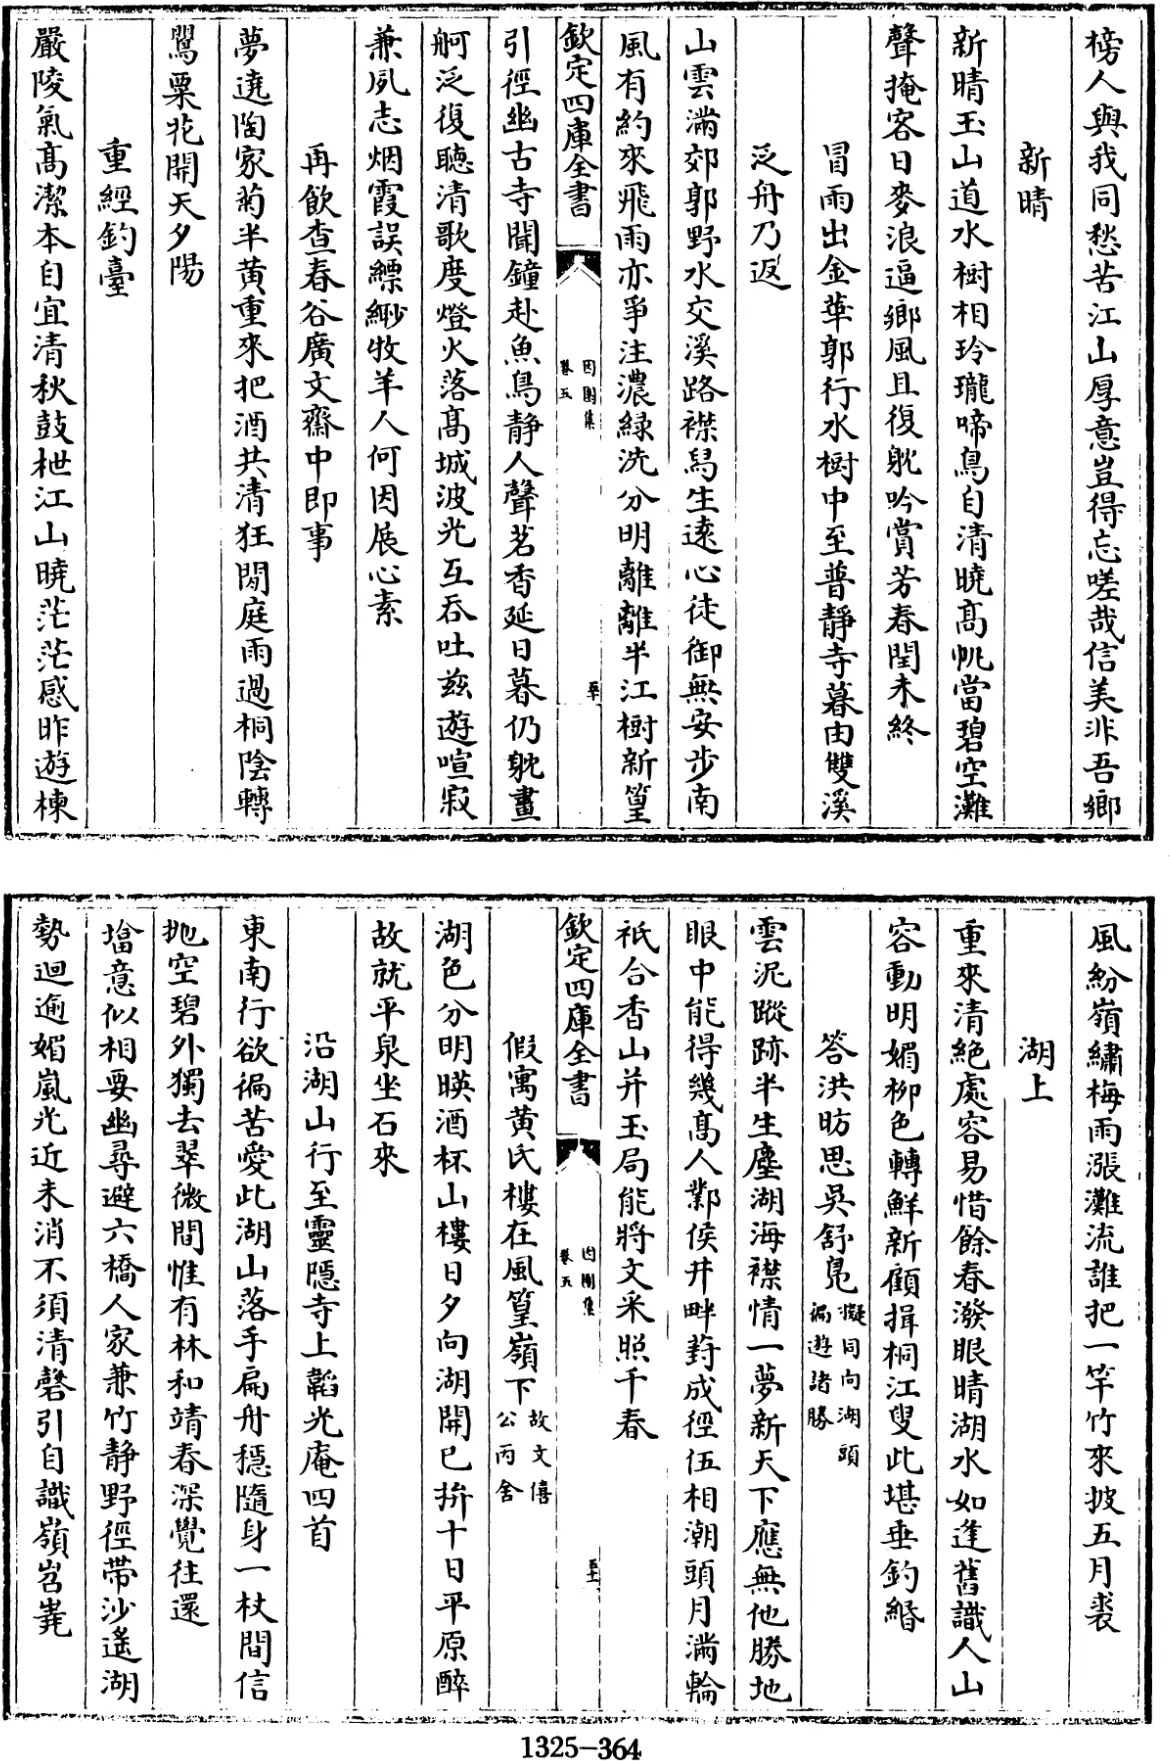 榜人與我同愁苦江山厚意豈得忘嗟哉信美非吾鄉
新晴
新晴玉山道水樹相玲瓏啼鳥自清曉高帆當碧空灘
聲掩客日麥浪逼鄉風且復躭吟賞芳春閏未終
冒雨出金華郭行水樹中至普靜寺暮由雙溪
泛舟乃返
山雲滿郊郭野水交溪路襟舄生遠心徒御無安步南
風有約來飛雨亦爭注濃綠洗分明離離半江樹新篁
欽定四庫全書
卷五
引徑幽古寺聞鐘赴魚鳥靜人聲茗香延日暮仍躭畫
舸泛復聽清歌度燈火落高城波光互吞吐茲遊喧寂
兼夙志烟霞誤縹緲牧羊人何因展心素
再飲查春谷廣文齋中即事
夢遶陶家菊半黃重來把酒共清狂閒庭雨過桐陰轉
鸎粟花開天夕陽
重經釣臺
嚴陵氣高潔本自宜清秋鼓枻江山曉茫茫感昨遊楝
風紛嶺繡梅雨漲灘流誰把一竿竹來披五月裘
湖上
重來清絶處容易惜餘春潑眼晴湖水如逢舊識人山
容動明媚柳色轉鮮新顧揖桐江叟此堪垂釣緡
答洪昉思吳舒鳧擬同向湖頭
徧遊諸勝
雲泥蹤跡半生塵湖海襟情一夢新天下應無他勝地
眼中能得幾高人鄴侯井畔葑成徑伍相潮頭月滿輪
祇合香山并玉局能將文采照千春
欽定四庫全書
卷五
假寓黃氏樓在風篁嶺下故文僖
公丙舍
湖色分明暎酒杯山樓日夕向湖開已拚十日平原醉
故就平泉坐石來
沿湖山行至靈隱寺上韜光庵四首
東南行欲徧苦愛此湖山落手扁舟穩隨身一杖間信
抛空碧外獨去翠微間惟有林和靖春深覺往還
墖意似相要幽尋避六橋人家兼竹靜野徑帶沙遙湖
勢迴逾媚嵐光近未消不須清磬引自識嶺岧嶤
1325-364